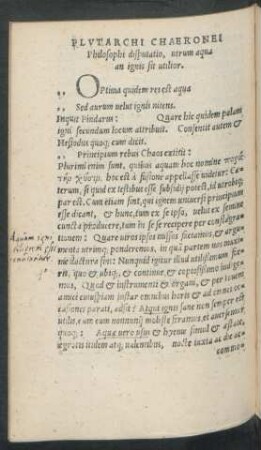 PLVTARCHI CHAERONEI
Philosophi disputatio, utrum aqua
an ignis sit utilior.
,, OPtima quidem res est aqua
,, Sed aurum velut ignis nitens.
Inquit Pindarus: Quare hic quidem palam
igni secundum locum attribuit. Consentit autem &
Hesiodus quoq; cum dicit.
,, Principium rebus Chaos extitit
Plurimi enim sunt, quibus aquam hoc nomine
hoc est à fusione appellasse videtur: Cæ-
terum, si quid ex testibus esse subsidij potest, id utrobiq;
par est. Cum etiam sint, qui ignem universi principium
esse dicant, & hunc, tum ex se ipso, velut ex semine
cuncta producere, tum in se se recipere per conflagra-
tionem: Quare viros ipsos missos faciamus, & argu-
menta utrimq; ponderemus, in quâ partem nos maxi-
me ductura sint: Nunquid igitur illud utilissimum
erit, quo & ubiq;, & continue, & copiosissimo indige-
mus, Quod & instrumenti & organi, & per
amici cuiuspiam instar omnibus horis & ad omnes oc-
casiones parati, adsit? Atqui ignis sane non semper est
utilis, eum enim nonnunq; molestè ferimus, et avertimur
quoq;: Aquæ vero usus & hyeme simul & æstate,
ægrotis itidem atq; valentibus, nocte iuxta ac die